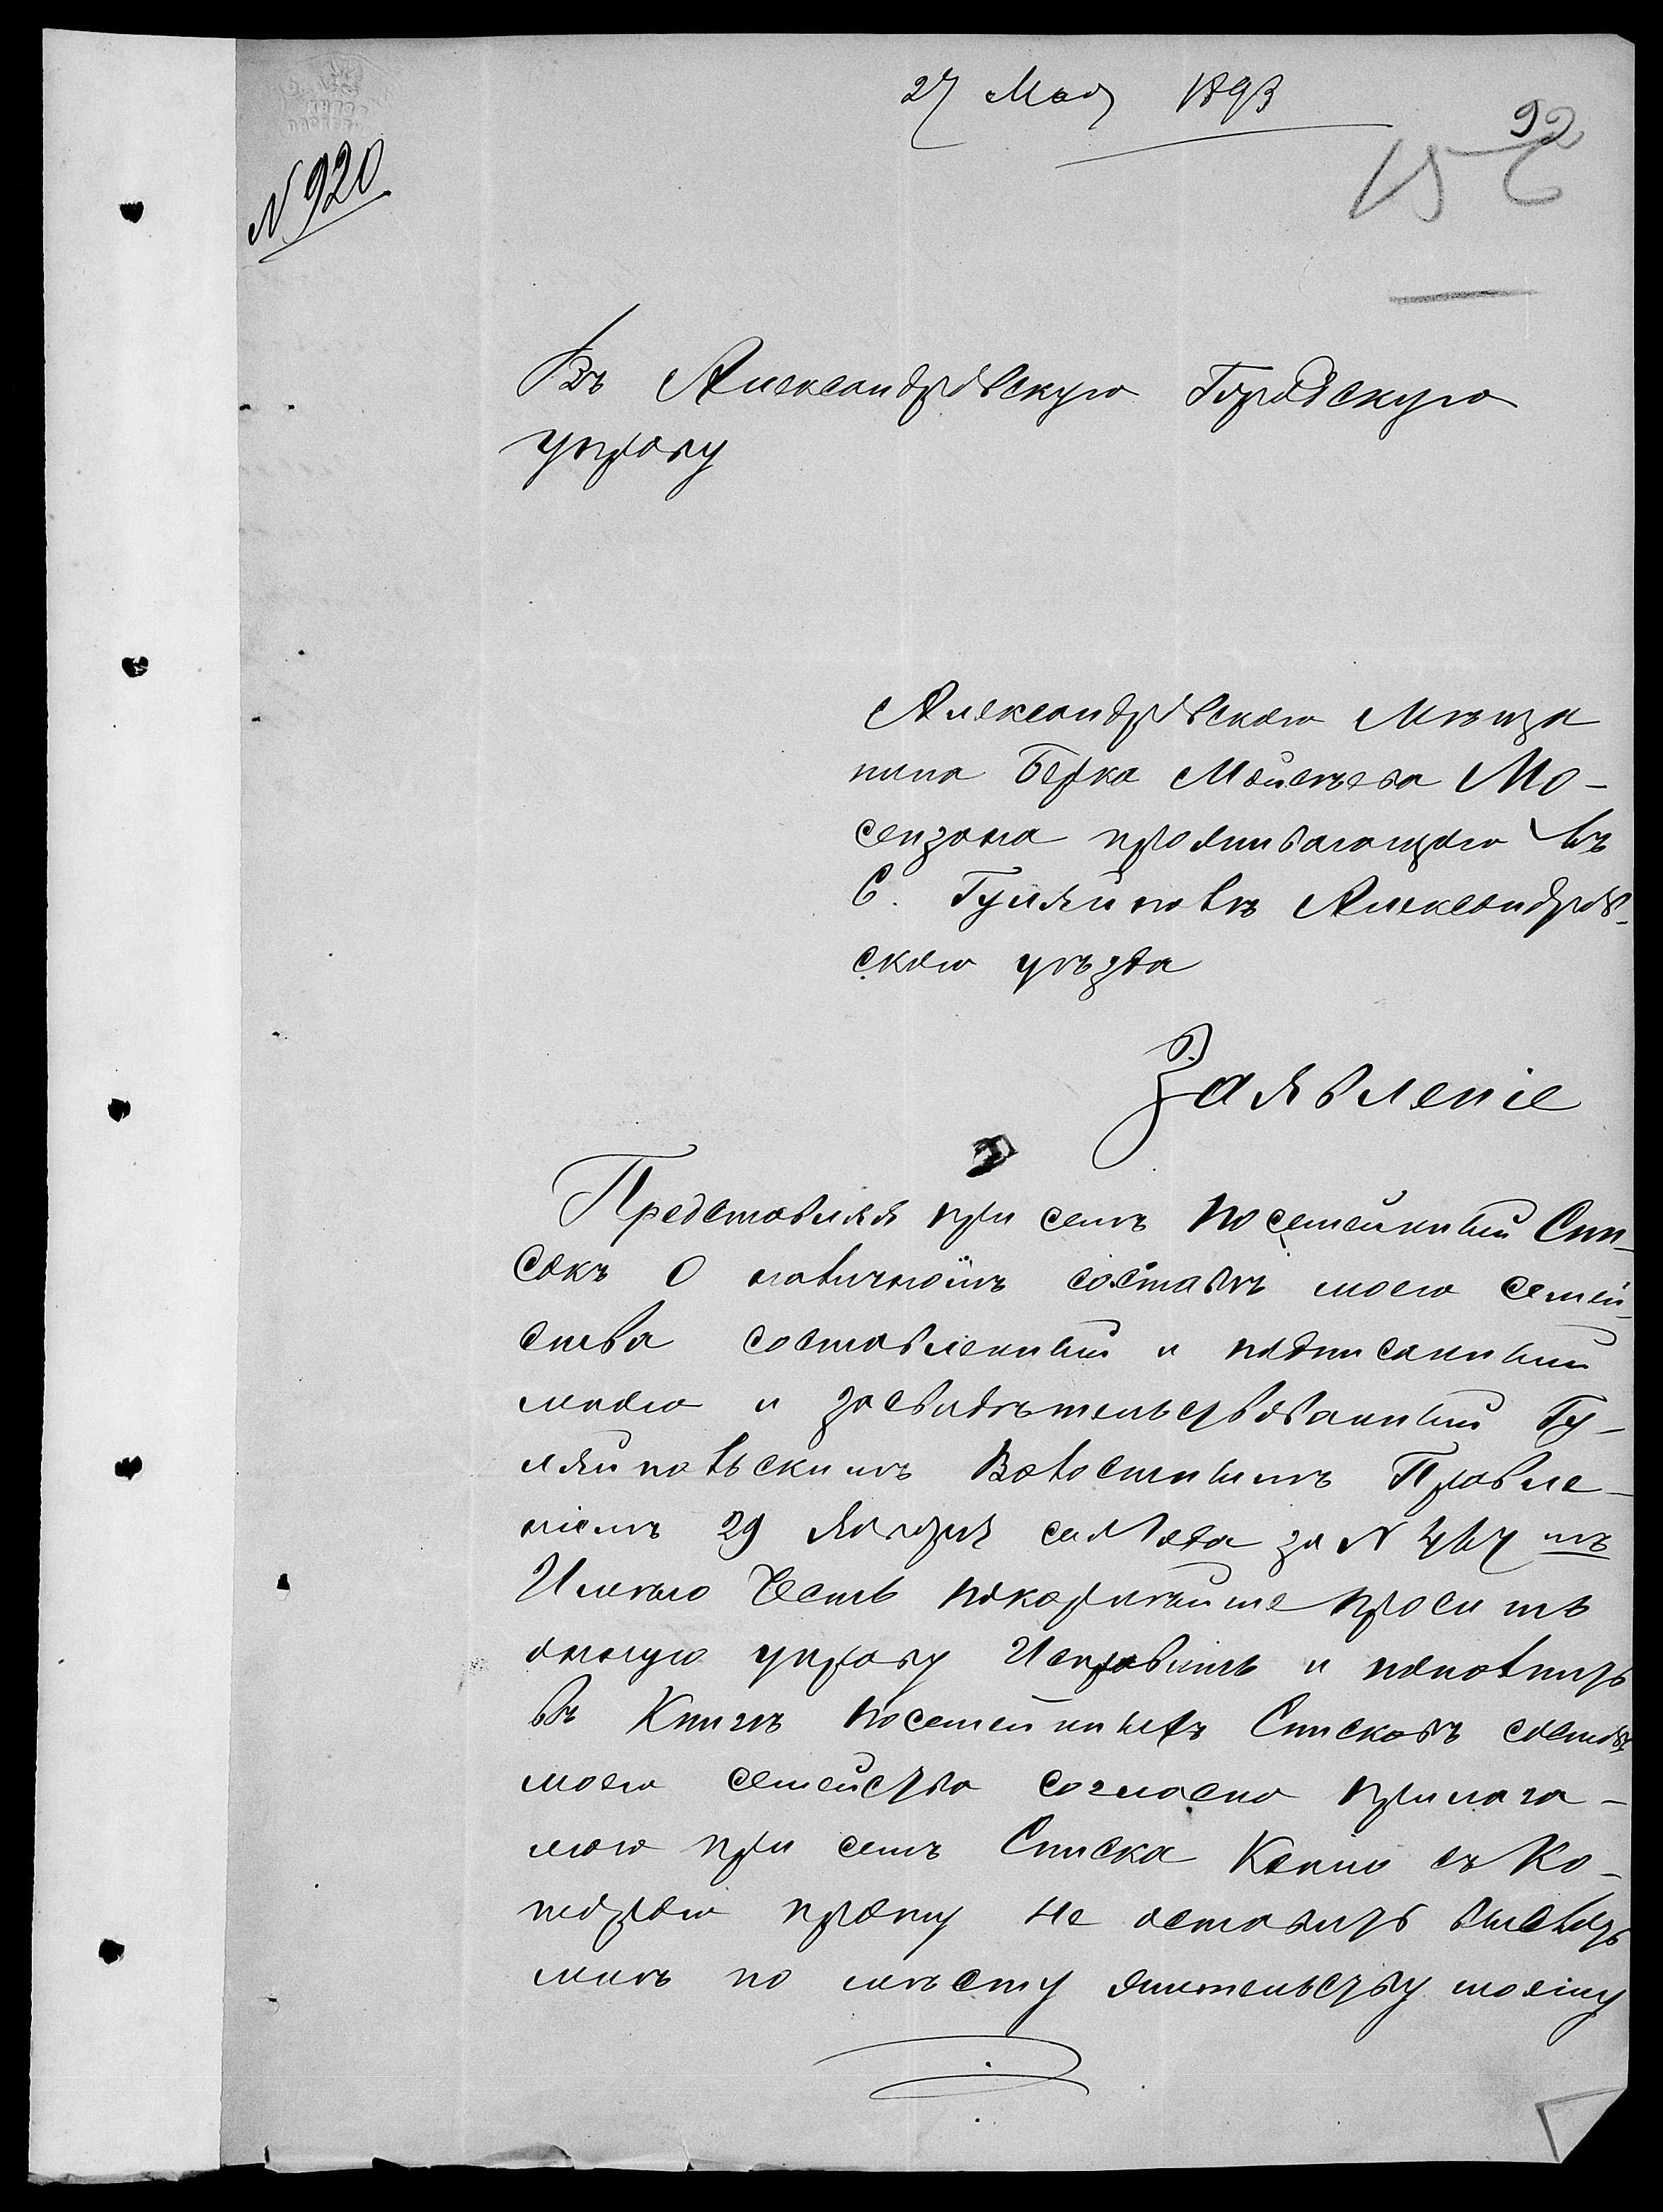 27 Мая 1893
92
15
N 920
Въ Александровскую Городскую
управу
Александровскаго Мѣща
нина Берка Мойсѣева Мо-
сензона проживающаго въ
С. Гуляйполѣ Александров-
скаго уѣзда
Заявленіе
Представляя при семъ посемейный Спи-
сокъ о наличномъ составѣ моего семей-
ства составленный и подписанный
мною и засвидѣтельствованный Гу-
ляйпольскимъ Волостнымъ Правле-
ніемъ 29 Января сего года за N
Имѣю Честь покорнѣйше просить
оную управу Исправить и пополнить
въ Книгѣ посемейныхъ Списковъ составъ
моего семейства согласно прилага-
мого при семъ Списка Копію съ Ко-
тораго прошу не оставить выслать
мнѣ по мѣсту жительству моему